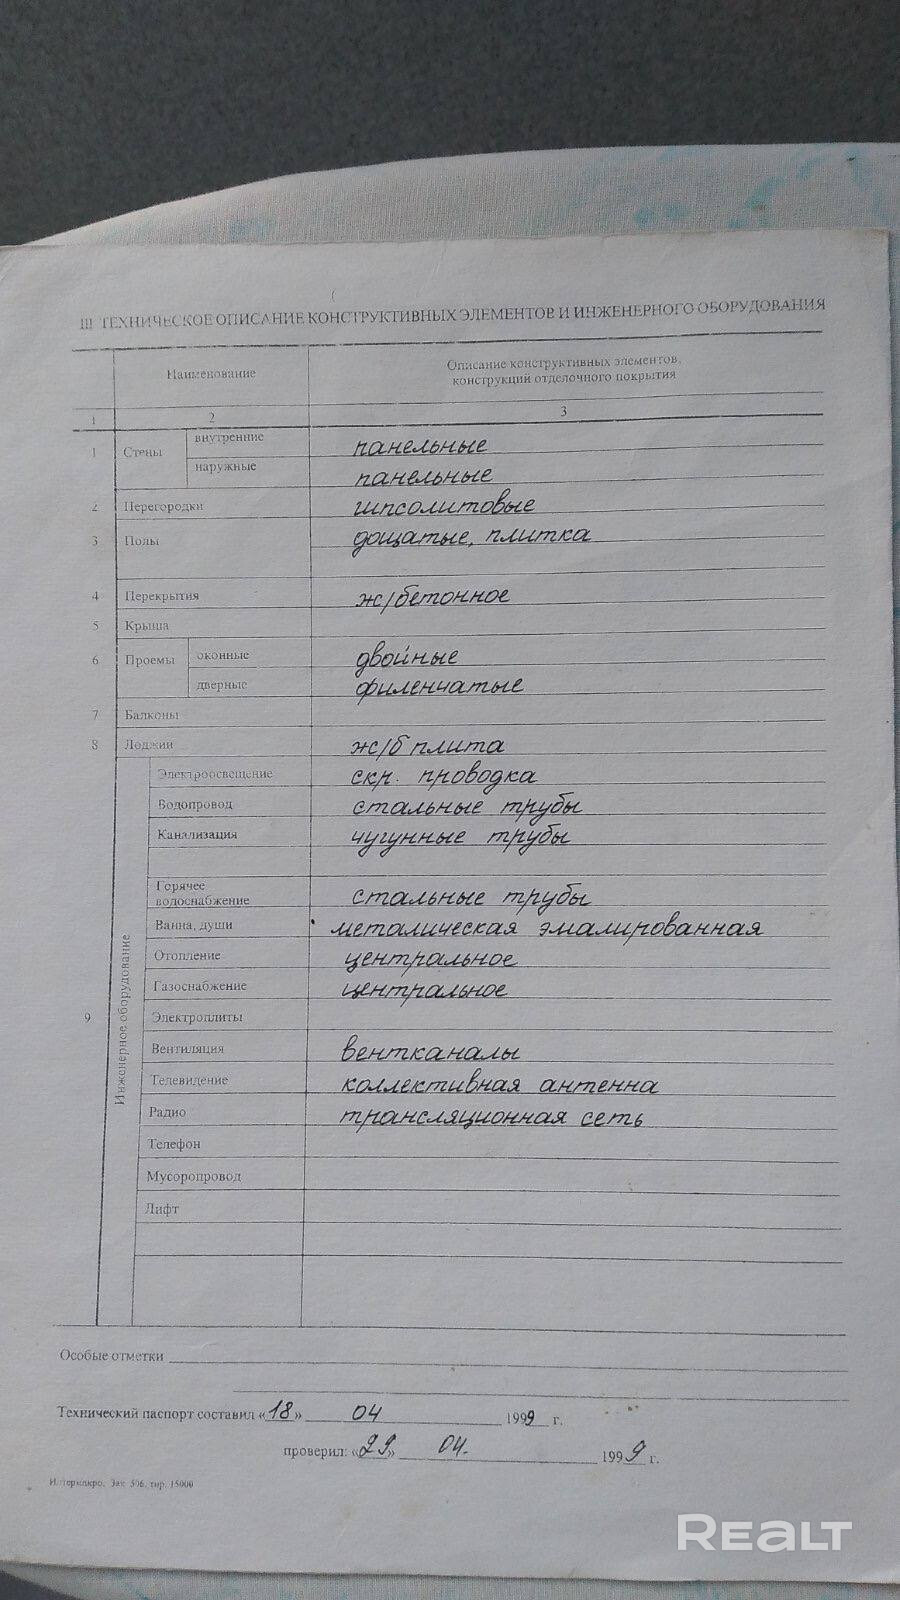 III ТЕХНИЧЕСКОЕ ОПИСАНИЕ КОНСТРУКТИВНЫХ ЭЛЕМЕНТОВ И ИНЖЕНЕРНОГО ОБОРУДОВАНИЯ
Наименование
Описание конструктивных элементов,
конструкций отделочного покрытия
1 2 3
1 Стены внутренние панельные
наружные панельные
2 Перегородки гипсолитовые
3 Полы дощатые, плитка
4 Перекрытия ж/бетонное
5 Крыша
6 Проемы оконные двойные
дверные филенчатые
7 Балконы
8 Лоджии ж/б плита
9 Инженерное оборудование
Электроосвещение скр. проводка
Водопровод стальные трубы
Канализация чугунные трубы
Горячее
водоснабжение стальные трубы
Ванна, души металическая эмалированная
Отопление центральное
Газоснабжение центральное
Электроплиты
Вентиляция вентканалы
Телевидение коллективная антенна
Радио трансляционная сеть
Телефон
Мусоропровод
Лифт
Особые отметки
Технический паспорт составил «18» 04 1999 г.
проверил: «29» 04. 1999 г.
Зак. 506, тир. 15000
REALT